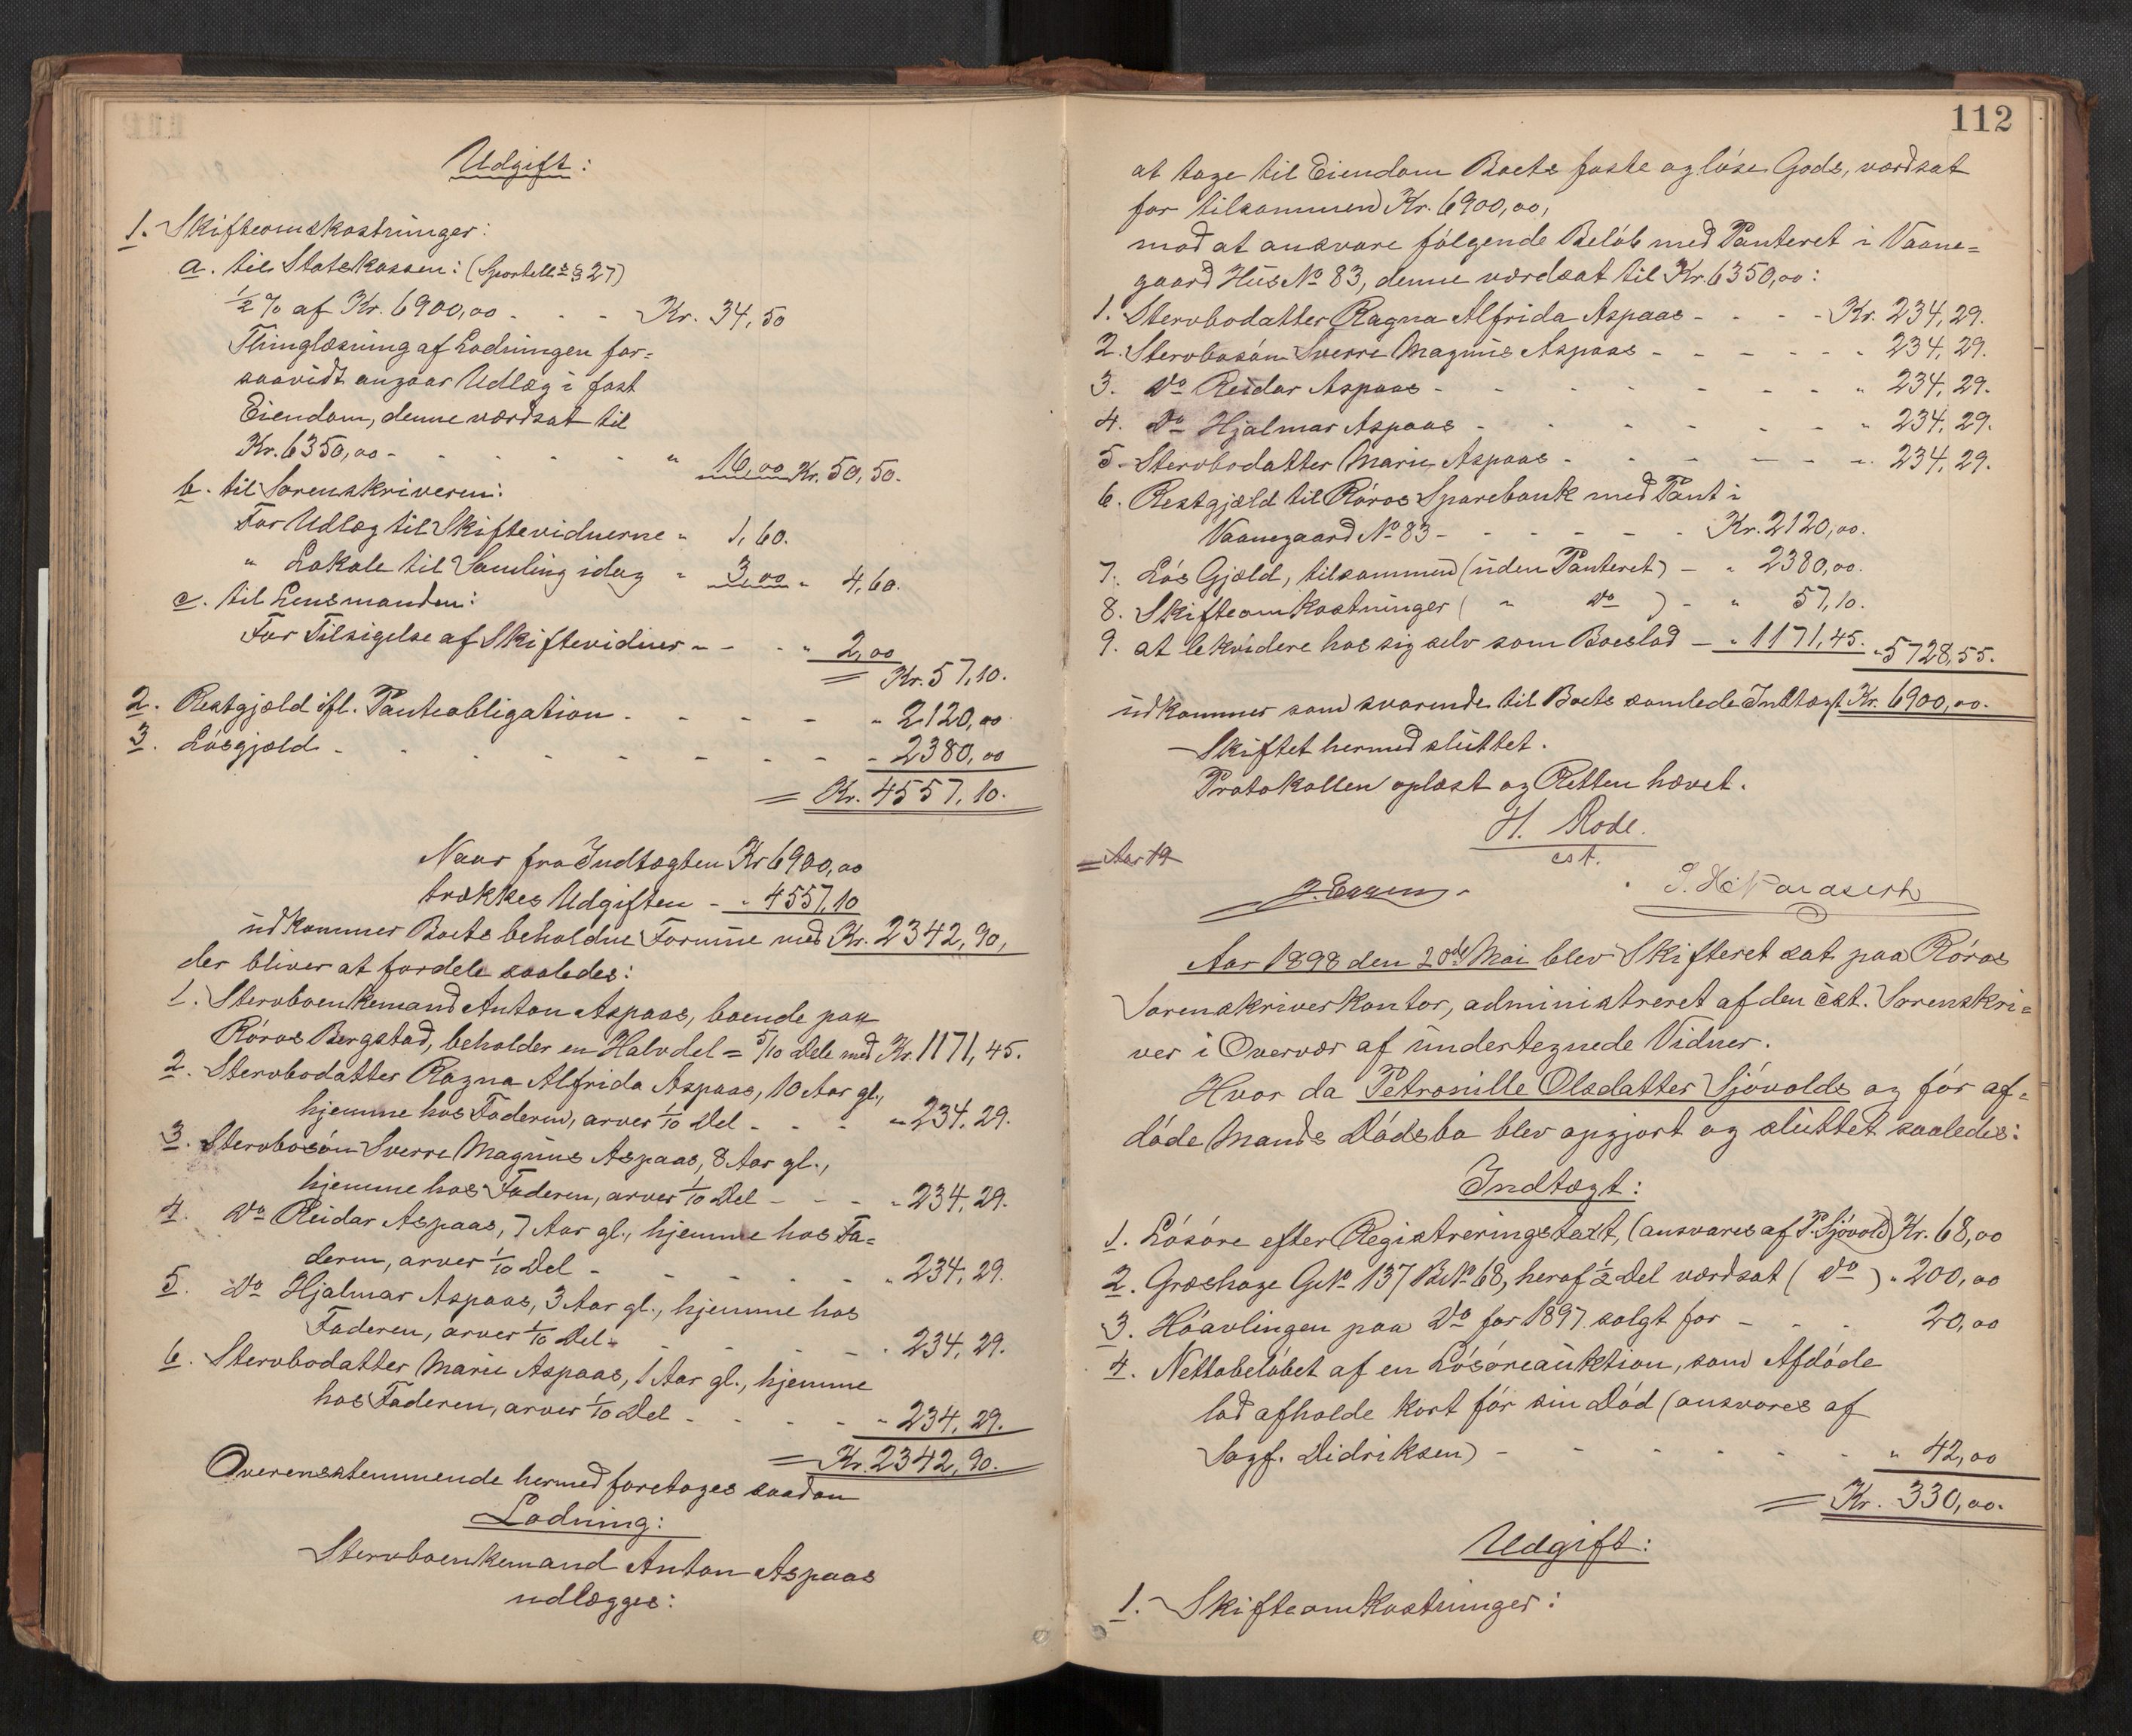 Udgift:
1. Skifteomskostninger:
a. til Statskassen: (Sportell. § 27)
1/2 % af Kr. 6900,00 - - - Kr. 34,50
Thinglæsning af Lodningen for-
saavidt angaar Udlæg i fast
Eiendom, denne værdsat til
Kr. 6350,00 - - - - - " 16,00 Kr. 50,50.
b. til Sorenskriveren:
For Udlæg til Skiftevidnerne " 1,60.
" Lokale til Samling idag " 3,00 " 4,60.
c. til Lensmanden:
For Tilsigelse af Skiftevidner - - " 2,00
= Kr. 57,10.
2. Restgjæld ifl. Panteobligation - - - - " 2120,00
3. Løsgjæld - - - - - - - - " 2380,00
= Kr. 4557,10.
Naar fra Indtægten Kr 6900,00
trækkes Udgiften - " 4557,10
udkommer Boets beholdne Formue med Kr. 2342,90,
der bliver at fordele saaledes:
1. Stervboenkemand Anton Aspaas, boende paa
Røros Bergstad, beholder en Halvdel = 5/10 Dele med Kr. 1171,45.
2. Stervbodatter Ragna Alfrida Aspaas, 10 Aar gl.,
hjemme hos Faderen, arver 1/10 Del - - - " 234,29.
3. Stervbosøn Sverre Magnus Aspaas, 8 Aar gl.,
hjemme hos Faderen, arver 1/10 Del - - - " 234,29.
4. Do Reidar Aspaas, 7 Aar gl., hjemme hos Fa-
deren, arver 1/10 Del - - - - - " 234,29.
5. Do Hjalmar Aspaas, 3 Aar gl., hjemme hos
Faderen, arver 1/10 Del - - - - - " 234,29.
6. Stervbodatter Marie Aspaas, 1 Aar gl., hjemme
hos Faderen, arver 1/10 Del - - - - " 234,29.
= Kr. 2342,90.
Overensstemmende hermed foretages saadan
Lodning:
Stervboenkemand Anton Aspaas
udlægges:
112
at tage til Eiendom Boets faste og løse Gods, værdsat
for tilsammen Kr. 6900,00,
mod at ansvare følgende Beløb med Panteret i Vaane-
gaard Hus No 83, denne værdsat til Kr. 6350,00:
1. Stervbodatter Ragna Alfrida Aspaas - - - - Kr. 234,29.
2. Stervbosøn Sverre Magnus Aspaas - - - - - " 234,29.
3. Do Reidar Aspaas - - - - - - - " 234,29.
4. Do Hjalmar Aspaas - - - - - - " 234,29.
5. Stervbodatter Marie Aspaas - - - - - - " 234,29.
6. Restgjæld til Røros Sparebank med Pant i
Vaanegaard No 83 - - - - - - Kr. 2120,00.
7. Løs Gjæld, tilsammen (uden Panteret) - " 2380,00.
8. Skifteomkostninger ( " Do ) - " 57,10.
9. at likvidere hos sig selv som Boeslod - " 1171,45. " 5728,55.
udkommer som svarende til Boets samlede Indtægt Kr. 6900,00.
Skiftet hermed sluttet.
Protokollen oplæst og Retten hævet.
H. Rode.
cst.
= Aar 19
J. Eggen
Aar 1898 den 20de Mai blev Skifteret sat paa Røros
Sorenskriverkontor, administreret af den cst. Sorenskri-
ver i Overvær af undertegnede Vidner.
Hvor da Petronille Olsdatter Sjøvolds og før af-
døde Mands Dødsbo blev opgjort og sluttet saaledes:
Indtægt:
1. Løsøre efter Registreringstaxt, (ansvares af P. Sjøvold) Kr. 68,00
2. Græshage G.No 137 B.No 68, heraf 1/2 Del værdsat ( Do ) " 200,00
3. Høavlingen paa Do for 1897 solgt for - - - 20,00
4. Nettobeløbet af en Løsøreauktion, som Afdøde
lod afholde kort før sin Død (ansvares af
Sagf. Didriksen) - - - - - - " 42,00
= Kr. 330,00.
Udgift:
1. Skifteomkostninger: